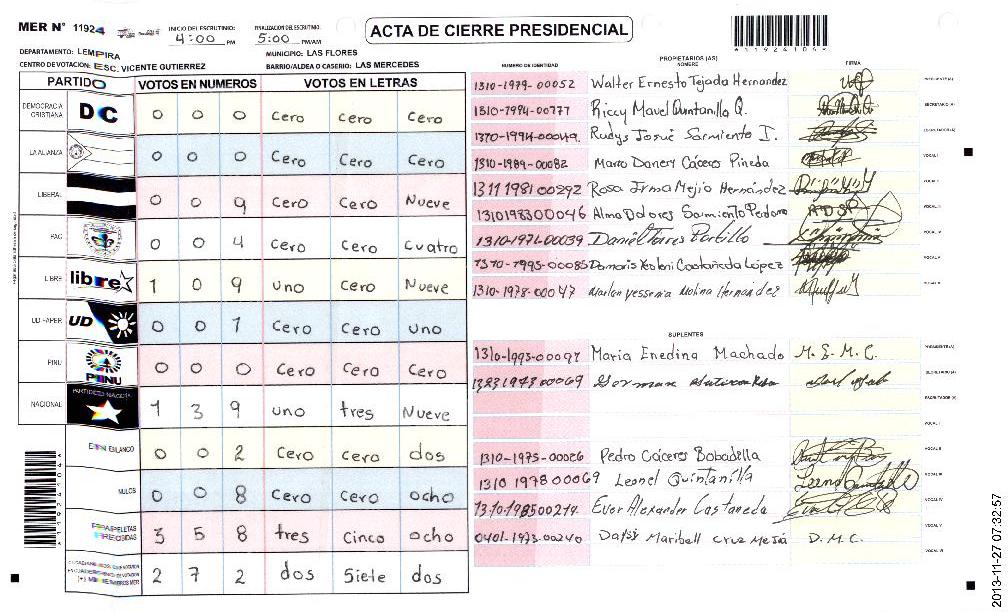 MER N° 11924
INICIO DEL ESCRUTINIO: 4:00 PM
FINALIZACION DEL ESCRUTINIO: 5:00 PM/AM
ACTA DE CIERRE PRESIDENCIAL
*11924104*
DEPARTAMENTO: LEMPIRA
MUNICIPIO: LAS FLORES
CENTRO DE VOTACION: ESC. VICENTE GUTIERREZ
BARRIO/ALDEA O CASERIO: LAS MERCEDES
PARTIDO VOTOS EN NUMEROS VOTOS EN LETRAS
DEMOCRACIA CRISTIANA DC 0 0 0 Cero Cero Cero
LA ALIANZA 0 0 0 Cero Cero Cero
LIBERAL 0 0 9 Cero Cero Nueve
PAC 0 0 4 Cero Cero Cuatro
LIBRE libre 1 0 9 uno Cero Nueve
UD-FAPER UD 0 0 1 Cero Cero uno
PINU PINU 0 0 0 Cero Cero Cero
NACIONAL 1 3 9 uno tres Nueve
EN BLANCO 0 0 2 Cero Cero dos
NULOS 0 0 8 Cero Cero ocho
3 5 8 tres Cinco ocho
2 7 2 dos Siete dos
PROPIETARIOS (AS)
NUMERO DE IDENTIDAD NOMBRE FIRMA
1310-1979-00052 Walter Ernesto Tejada Hernandez PRESIDENTE (A)
1310-1994-00777 Riccy Mavel Quntanilla Q. SECRETARIO (A)
1310-1994-00049 Rudys Josué Sarmiento I. ESCRUTADOR (A)
1310-1989-00082 Marco Danery Cáceres Pineda VOCAL I
1311 1981 00292 Rosa Irma Mejía Hernández VOCAL II
1310198300046 Alma Dolores Sarmiento Perdomo VOCAL III
1310-1971-00039 Daniel Torres Portillo VOCAL IV
1310-1995-00085 Damaris Xiolani Castañeda López VOCAL V
1310-1978-00047 Marlen Yessenia Molina Hernández
SUPLENTES
1310-1993-00097 Maria Enedina Machado M. E. M. C. PRESIDENTE (A)
German SECRETARIO (A)
ESCRUTADOR (A)
VOCAL I
1310-1975-00026 Pedro Cáceres Bobadilla VOCAL II
1310 1978 00069 Leonel Quintanilla VOCAL III
1310-198500214 Ever Alexander Castaneda VOCAL IV
0401-1973-00240 Daysi Maribell Cruz Mejía D. M. C. VOCAL V
2013-11-27 07:32:57